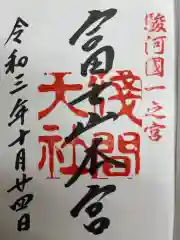 駿河國一之宮
富士山本宮
浅間
天社
令和三年十月廿四日